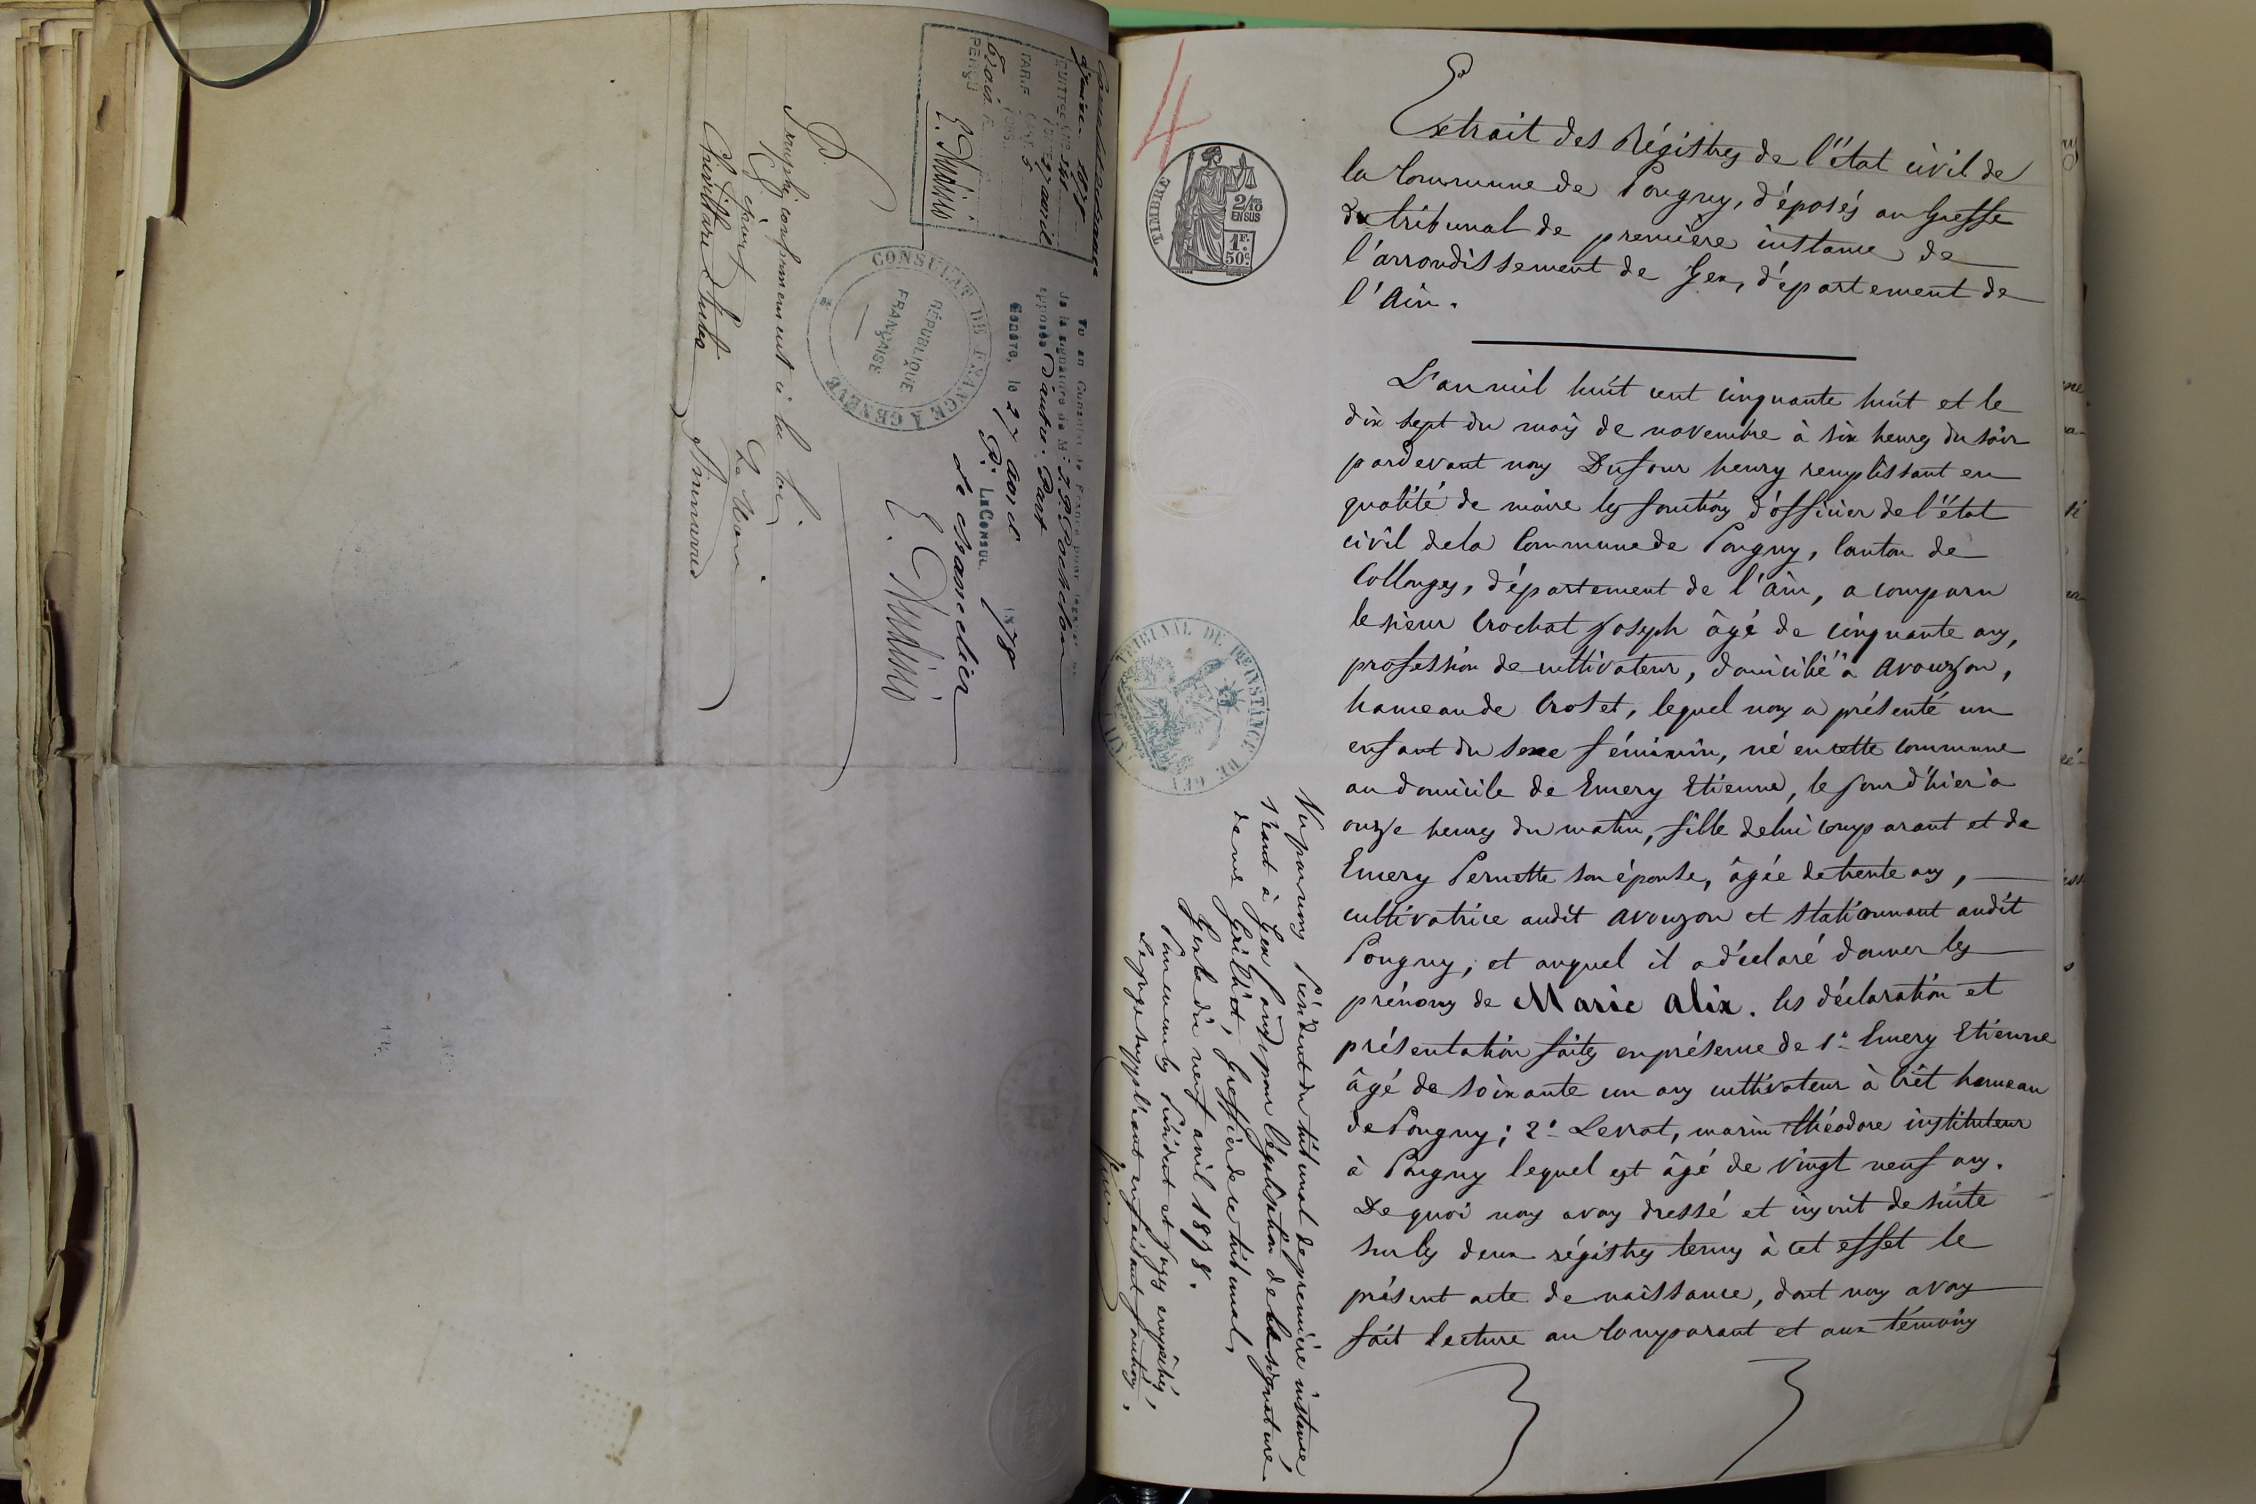 Consulat de France
GENÈVE 1878
27 avril
TARIF
Trois F.
PERÇU
E. Thdisio
Vu au Consulat de France pour légalisation
de la signature de M. J. P. Pochelon
apposée d'autre part
Genève, le 27 avril 1878
P. LE CONSUL
Le chancelier
CONSULAT DE FRANCE A GENÈVE
RÉPUBLIQUE
FRANÇAISE
D.
Transphé conformément à la loi
Le Maire
4
TIMBRE
2/10
EN SUS
1F.
50c.
Extrait des Régistres de l'état civil de
la Commune de Pougny, d'éposés au Greffe
du tribunal de première instance de
l'arrondissement de Gex, d'épartement de
l'Ain.
L'an mil huit cent cinquante huit et le
dix sept du mois de novembre à six heures du soir
pardevant nous Dufour henry remplissant en
qualité de maire les fonctions d'officier de l'état
civil dela Commune de Pougny, Canton de
Collonges, d'épartement de l'Ain, a comparu
le sieur Crochat Joseph âgé de cinquante ans,
profession de cultivateur, domicilié à Avouzon,
hameau de Croset, lequel nous a présenté un
enfant du sexe féminin, né en cette commune
au domicile de Emery Etienne, le jour d'hier à
onze heures du matin, fille de lui comparant et de
Emery Pernette son épouse, âgée de trente ans,
cultivatrice audit Avouzon et stationnant audit
Pougny, et auquel il a déclaré donner les
prénoms de Marie Alix. les déclaration et
présentation faites en présence de 1° Emery Etienne
âgé de soixante un ans cultivateur à Crêt hameau
de Pougny; 2° Levrat, marin théodore instituteur
à Pougny lequel est âgé de vingt neuf ans.
De quoi nous avons dressé et inscrit de suite
sur les deux régistres tenus à cet effet le
présent acte de naissance, dont nous avons
fait lecture au Comparant et aux témoins
TRIBUNAL DE 1RE INSTANCE DE GEX
AIN
Vu par nous Président du tribunal de première instance
séant à Gex pour légalisation de la signature
de me Grilliot, Greffier de ce tribunal,
Gex le dix neuf avril 1878.
Pour Président et Juges empêchés,
Le juge suppléant en faisant fonctions,